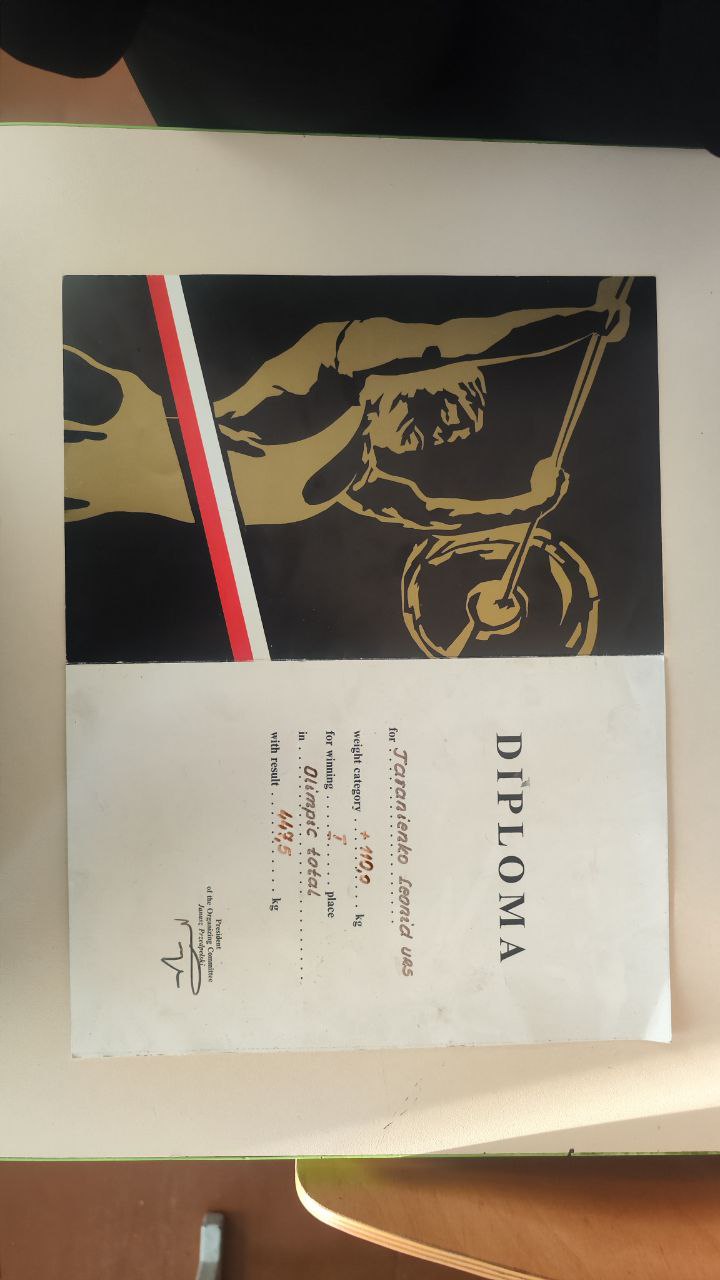 DIPLOMA
for Taranienko Leonid URS
weight category + 110,0 kg
for winning I place
in Olimpic total
with result 447,5 kg
President
of the Organizing Committee
Janusz Przedpelski